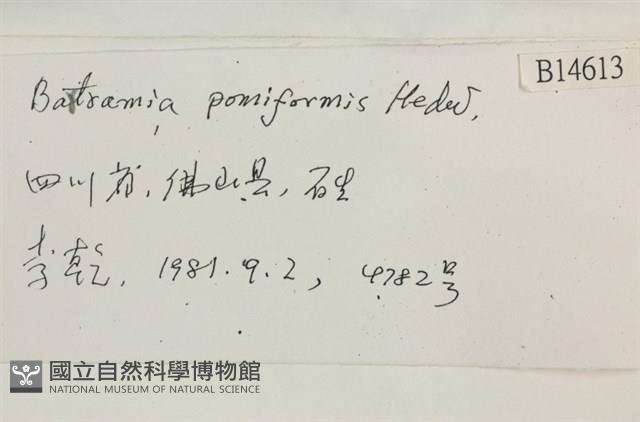 B14613
Batramia pomiformis Hedw.
四川省, 佛山县, 石生
李乾, 1981.9.2, 4782号
國立自然科學博物館
NATIONAL MUSEUM OF NATURAL SCIENCE